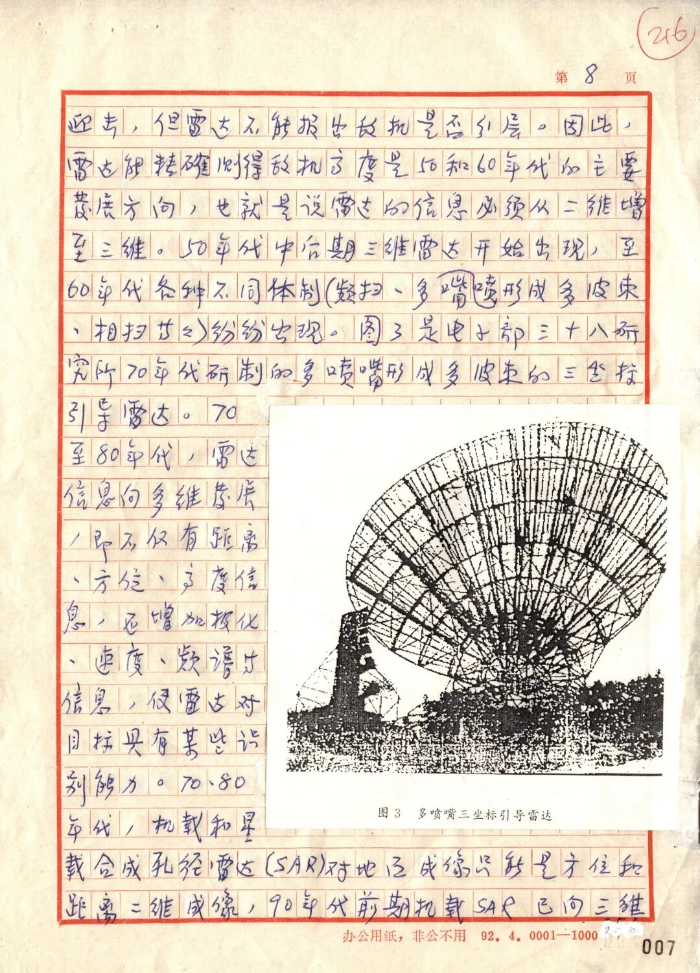 216
第 8 页
迎击，但雷达不能报出敌机是否引层。因此，
雷达能精确测得敌机高度是50和60年代的主要
发展方向，也就是说雷达的信息必须从二维增
至三维。50年代中后期三维雷达开始出现，至
60年代各种不同体制(频扫、多嘴喷形成多波束
、相扫等々)纷纷出现。图3是电子部三十八研
究所70年代研制的多喷嘴形成多波束的三坐标
引导雷达。70
至80年代，雷达
信息向多维发展
，即不仅有距离
、方位、高度信
息，还增加极化
、速度、频谱等
信息，使雷达对
目标具有某些识
别能力。70、80
年代，机载和星
载合成孔径雷达(SAR)对地面成像只能是方位和
距离二维成像，90年代前期机载SAR已向三维
图 3 多喷嘴三坐标引导雷达
办公用纸，非公不用 92．4．0001—1000
007